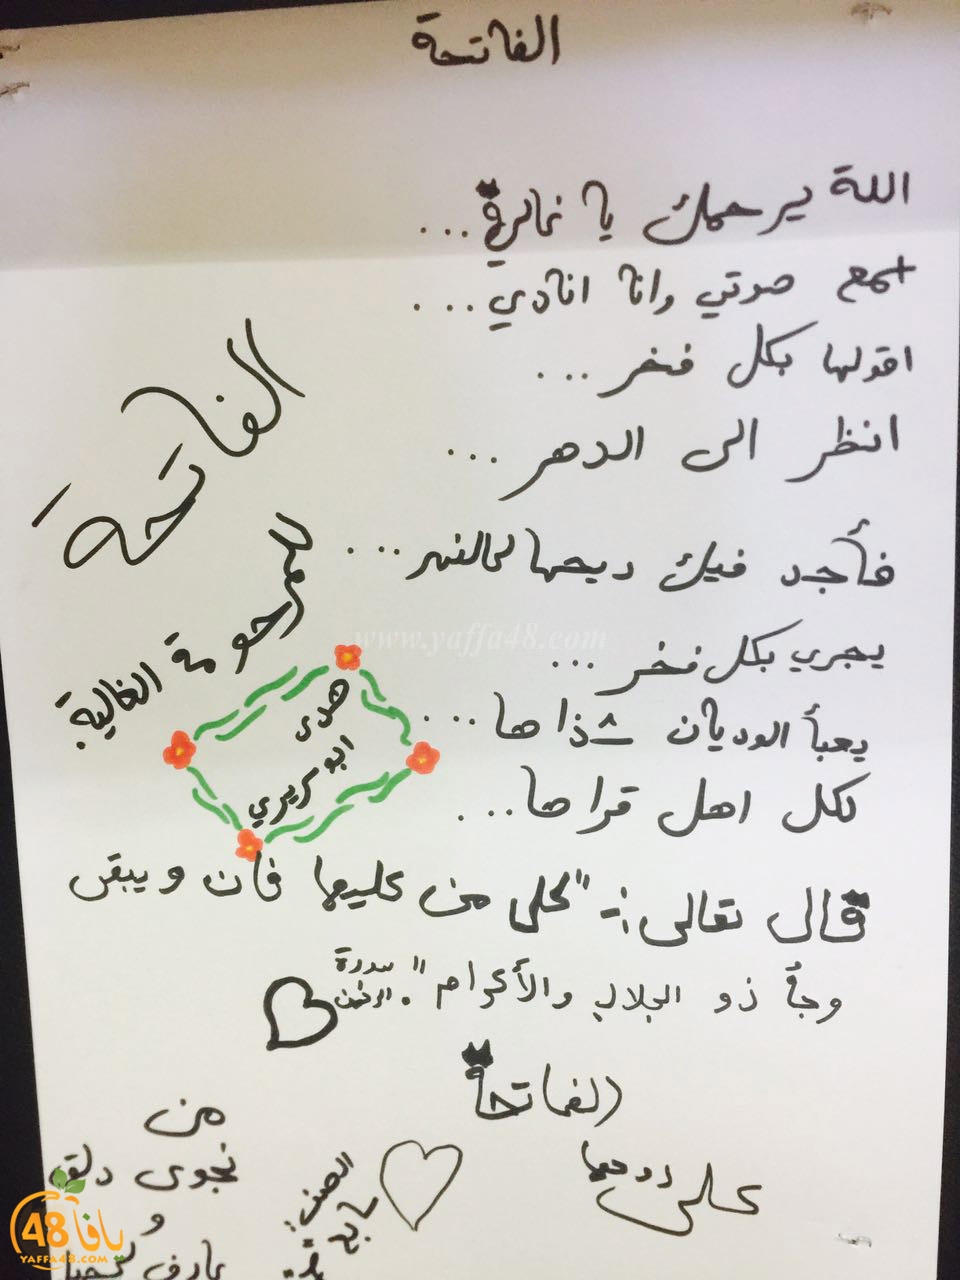 الفاتحة
اللة يرحمك يا غالية ...
اسمع صوتي وانا انادي ...
اقولها بكل فخر ...
انظر الى الدهر ...
فأجد فيك ريحها كالنهر ...
يجري بكل فخر ...
يعبأ الوديان شذاها ...
لكل اهل قراها ...
قال تعالى :- "كل من عليها فان ويبقى
وجه ذو الجلال والأكرام". سورة الرحمن
الفاتحة
على روحها
الفاتحة
للمرحومة الغالية:
هدى
ابو سريري
من
نجوى دلق
و
الصف:
سابع
www.yaffa48.com
يافا 48
YAFFA48.COM